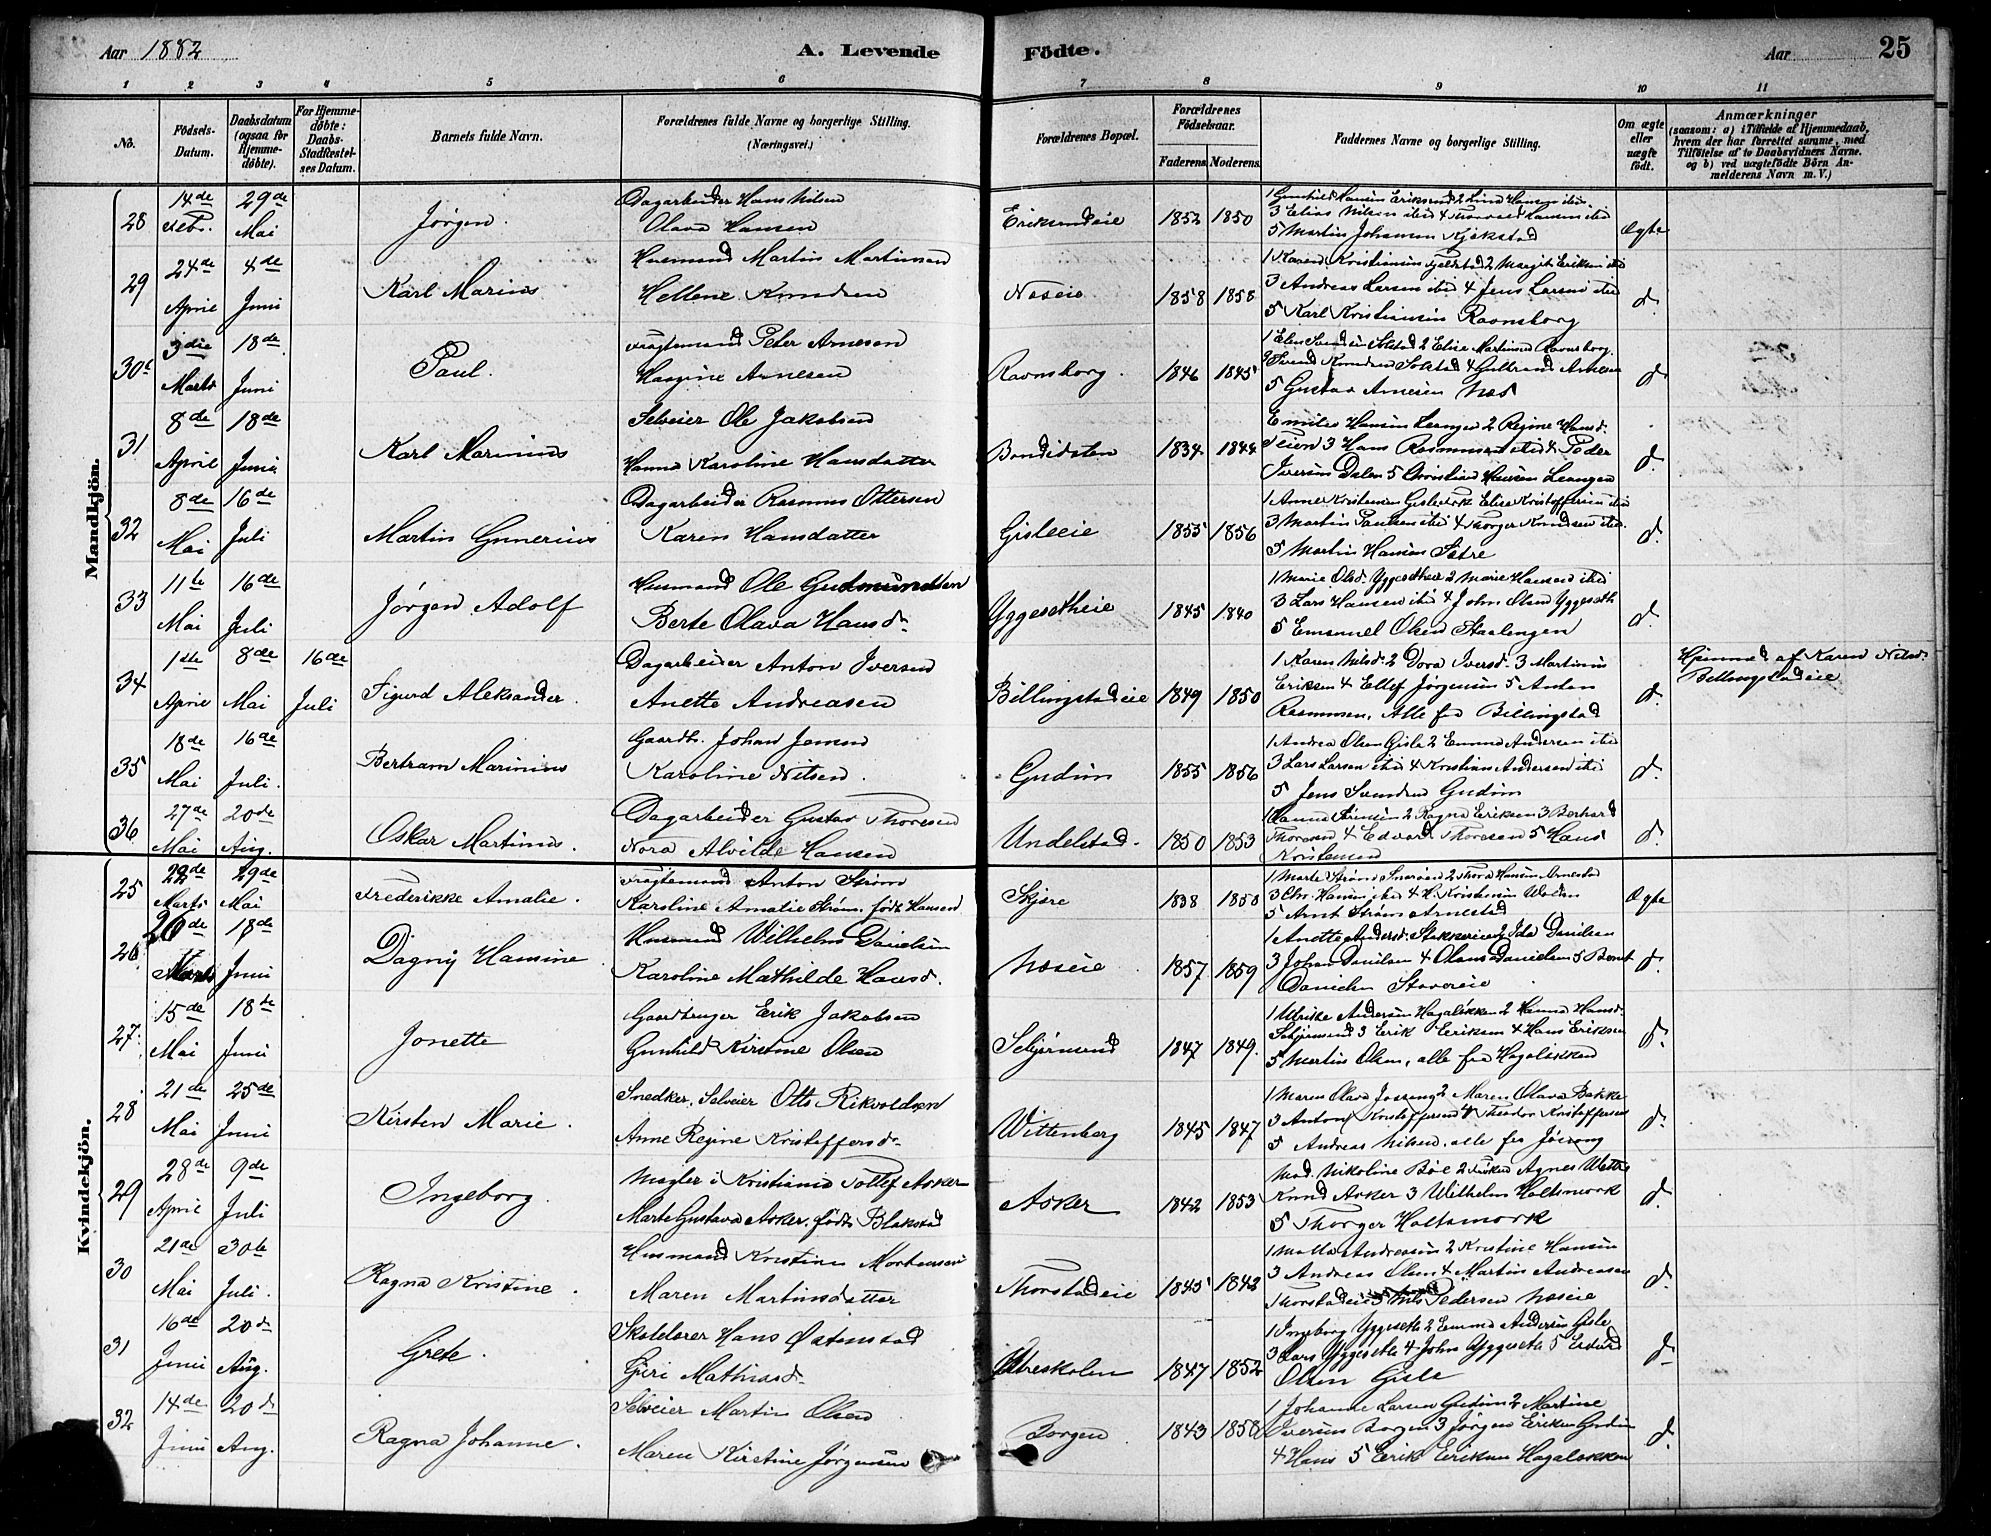 Aar 1882
A. Levende Födte.
Aar 25
1 2 3 4 5 6 7 8 9 10 11
No.
Födsels-Datum.
Daabsdatum (ogsaa for Hjemmedöbte).
For Hjemmedøbte: Daabs-Stadfæstelses Datum.
Barnets fulde Navn.
Forældrenes fulde Navne og borgerlige Stilling. (Næringsvei.)
Forældrenes Bopæl.
Forældrenes Födselsaar.
Faderens. Moderens.
Faddernes Navne og borgerlige Stilling.
Om ægte eller uægte födt.
Anmærkninger
(saasom: a) i Tilfælde af Hjemmedaab, hvem der har forrettet samme, med Tilföielse af to Daabsvidners Navne. og b) ved uægtefödte Börn Anmelderens Navn m. V.)
Mandkjön.
28 14de Febr. 29de Mai Jørgen. Dagarbeider Hans Nilsen
Olava Hansen Eriksrudeie 1852 1850
3 Elias Nilsen ibid
5 Martin Johansen Kjøkstad Ægte
29 24de April 4de Juni Karl Marius Husmand Martin Martinsen
Hellene Knudsen Næseie 1858 1858
3 Andreas Larsen ibid 4 Jens Larsen ibid
5 Karl Kristiansen Ravnsborg d.
30 3die Marts 18de Juni Paul. Fragtemand Peter Arnesen
Arnesen Ravnsborg. 1846 1845
5 Gustav Arnesen Næs d
31 8de April 18de Juni Karl Marinius Selveier Ole Jakobsen
Hanna Karoline Hansdatter 1834 1844
3 Hans Rasmussen ibid 4 Peder
Iversen Dalen 5 Christian Hansen Leangen d.
32 8de Mai 16de Juli Martin Gunerius Dagarbeider Rasmus Ottersen
Karen Hansdatter Gisleeie 1855 1856
3 Martin Paulsen ibid 4 Torger Knudsen ibid.
5 Martin Hansen Sætre d.
33 11te Mai 16de Juli Jørgen Adolf Husmand Ole Gudmundsen
Berte Olava Hansd. Yggesetheie 1845 1840
1 Marie Olsd. Yggesetheie 2 Marie Hansen ibid
3 Lars Hansen ibid 4 John Olsen Yggeseth
5 Emanuel Olsen Staalengen d.
34 1ste April 8de Mai 16de Juli Sigurd Aleksander. Dagarbeider Anton Iversen
Anette Andreasen Billingstadeie 1849 1850
1 Karen Nilsd. 2 Dora Iversd. 3 Martinius
Eriksen 4 Ellef Jørgensen 5 Anton
Rasmussen, Alle fra Billingstad d.
Hjemmed. af Karen Nilsd.
Billingstadeie
35 18de Mai 16de Juli. Bertram Marinius Gaardb. Johan Jensen
Karoline Nilsen. Gudim 1855 1856
1 Andrea Olsen Gisle 2 Emma Andersen ibid
3 Lars Larsen ibid 4 Kristian Andersen ibid
5 Jens Svendsen Gudim d.
36 27de Mai 20de Aug. Oskar Martinus. Dagarbeider Gustav Thoresen
Nora Alvilde Hansen Undelstad. 1850 1853
2 Ragna Eriksen 3 Berhard
Thoresen 4 Edvard Thoresen 5 Hans
Kristensen d.
Kvindekjön.
25 22de Marts 29de Mai Frederikke Amalie. Fragtemand Anton Strøm
Karoline Amalie Strøm. født Hansen Skjøre 1838 1850
5 Arnt Strøm Arnestad Ægte
26 26de Marts 18de Juni Dagny Hansine Husmand Wilhelm Danielsen
Karoline Mathilde Hansd. Næseie 1857 1859
3 Johan Danielsen 4 Olaus Danielsen 5 Bernt
Danielsen d.
27. 15de Mai 18de Juni Jonette Gaardbruger Erik Jakobsen
Gunhild Kirstine Olsen 1847 1849.
1 Ulrikke Andersen Hagaløkken 2 Hanna Hansd.
3 Erik Eriksen 4 Hans Eriksen
5 Martin Olsen, alle fra Hagaløkken d.
28 21de Mai 25de Juni Kirsten Marie. Snedker, Selveier Otto Rikvoldsen
Anne Regine Kristoffersd. Wittenberg 1845 1847
2 Maren Olava Bakke
3 Anton Kristoffersen 4 Theodor Kristoffersen
5 Andreas Nilsen, alle fra d.
29 28de April 9de Juli Ingeborg. Mægler i Kristiania Tollef Asker
Marte Gustava Asker. født Blakstad Asker 1842 1853
Mad. Nikoline Bøe 2 Frøken Agnes Wettre
Knud Asker 3 Wilhelm Holtsmork
5 Thorger Holtsmork d.
30 21de Mai 30te Juli. Ragna Kristine. Husmand Kristian Mortensen
Maren Martinsdatter Thorstadeie 1845 1842
2 Kristine Hansen
3 Andreas Olsen 4 Martin Andreasen
Thorstadeie 5 Nils Pedersen Næseie d.
31 16de Juni 20de Aug. Grete. Skolelærer Hans Østenstad
Guri Mathiasd. 1847 1852
1 Ingeborg Yggeseth 2 Emma Andersen Gisle
3 Lars Yggeseth 4 John Yggeseth 5 Edvard
Olsen Gisle d
32 14de Juni 20de Aug. Ragna Johanne. Selveier Martin Olsen
Maren Kirstine Jørgensen Borgen 1843 1858
1 Johanne Larsen Gudim 2 Martine
Iversen Borgen 3 Jørgen Eriksen Gudim
4 Hans 5 Erik Eriksen Hagaløkken d.